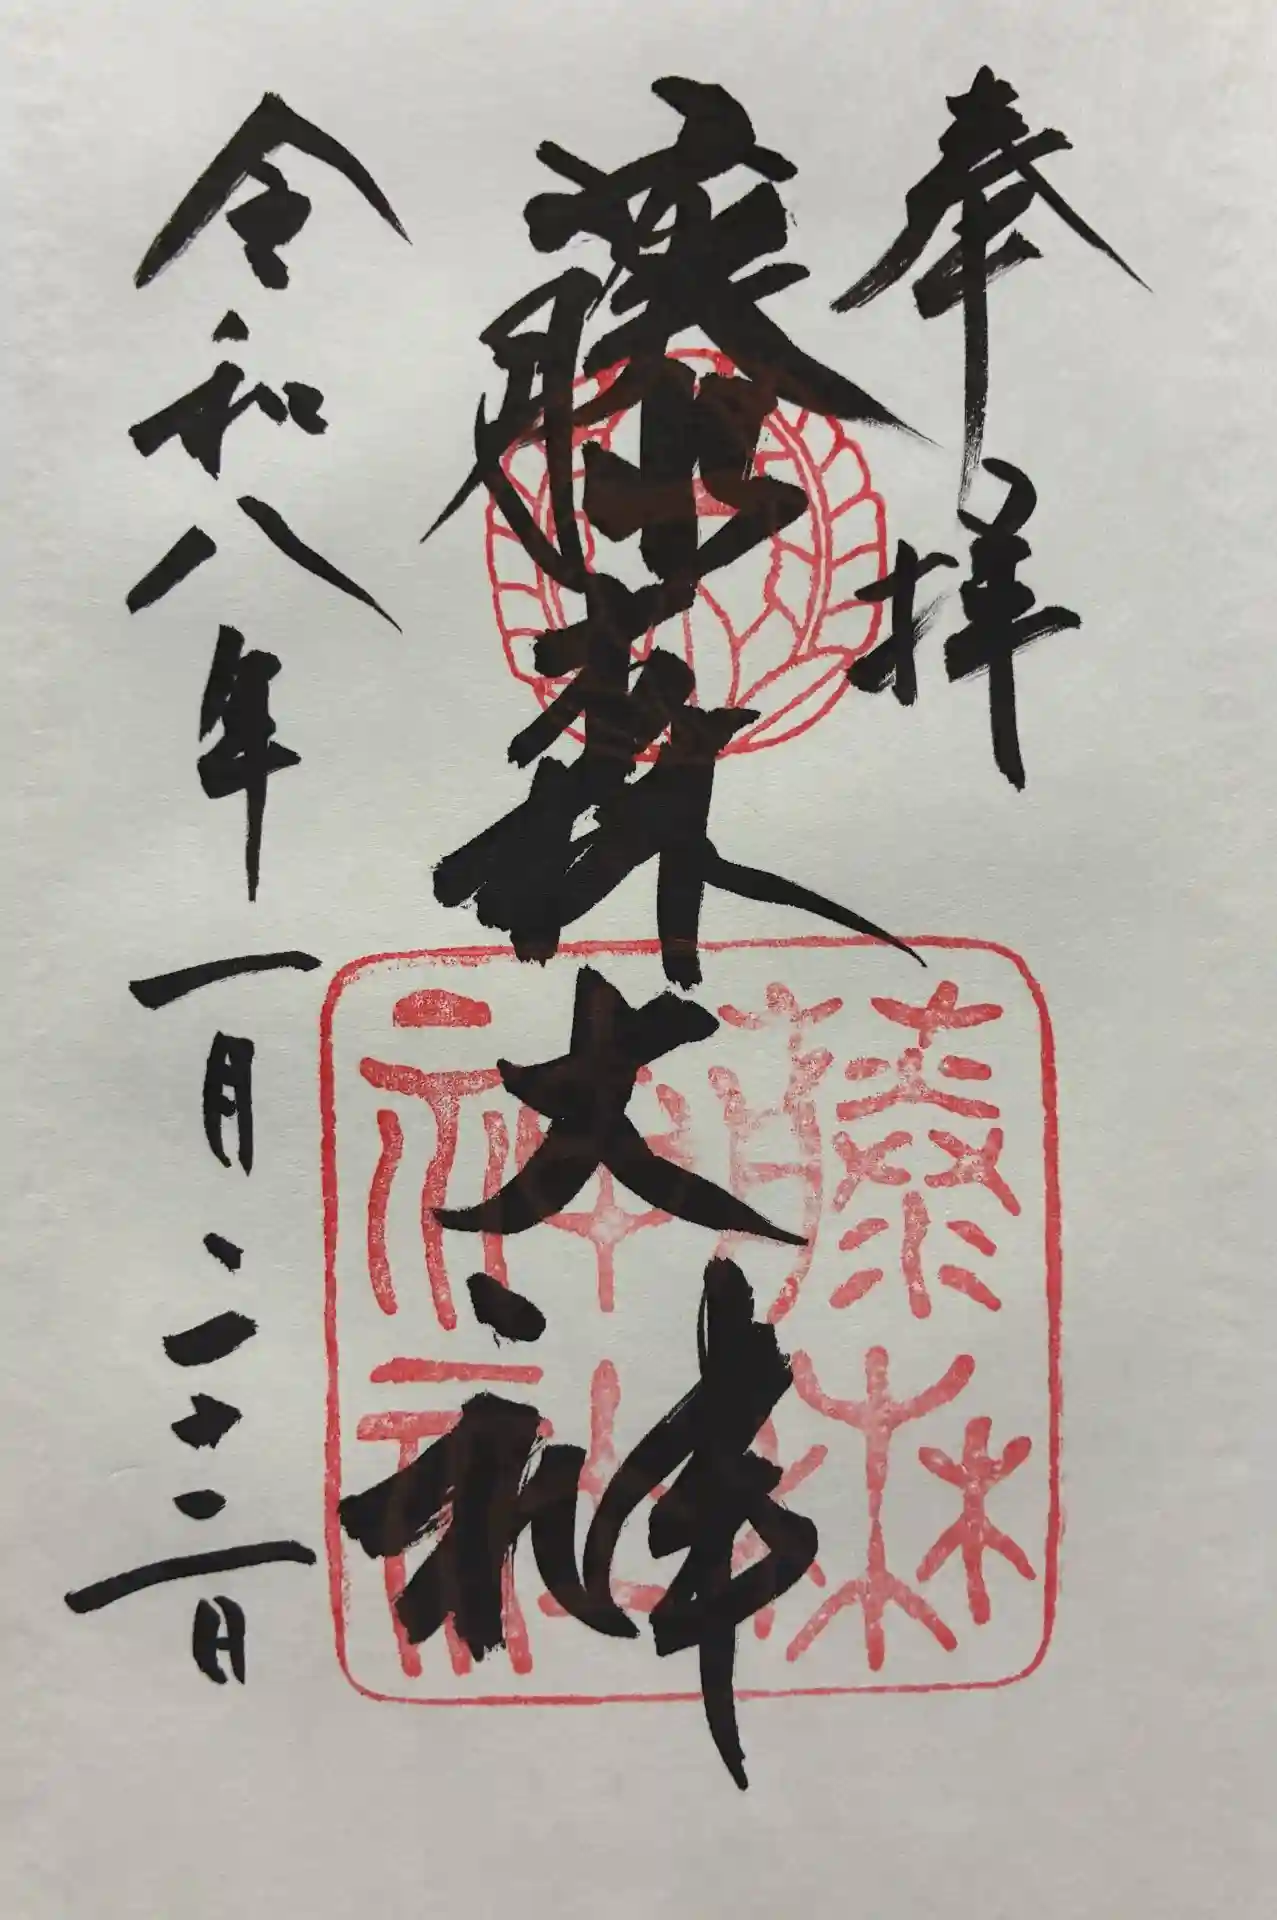 奉拝
藤森大神
令和八年一月二十二日
藤森神社